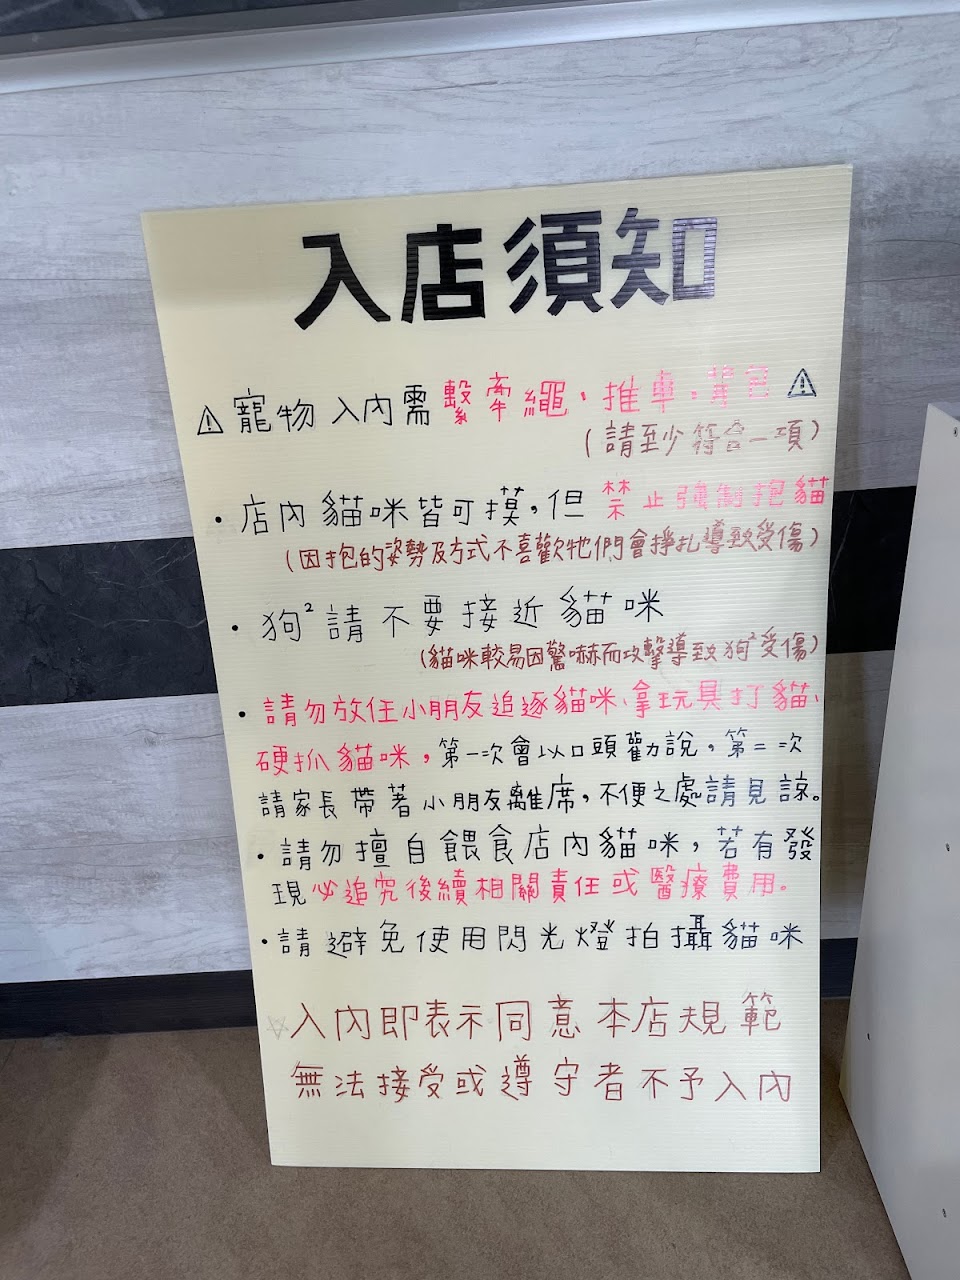 入店須知
⚠寵物入內需繫牽繩.推車.背包⚠
(請至少符合一項)
·店內貓咪皆可摸,但禁止強制抱貓
(因抱的姿勢及方式不喜歡牠們會掙扎導致受傷)
·狗²請不要接近貓咪
(貓咪較易因驚嚇而攻擊導致狗²受傷)
·請勿放任小朋友追逐貓咪、拿玩具打貓、
硬抓貓咪,第一次會以口頭勸說,第二次
請家長帶著小朋友離席,不便之處請見諒。
·請勿擅自餵食店內貓咪,若有發
現必追究後續相關責任或醫療費用。
·請避免使用閃光燈拍攝貓咪
☆入內即表示同意本店規範
無法接受或遵守者不予入內